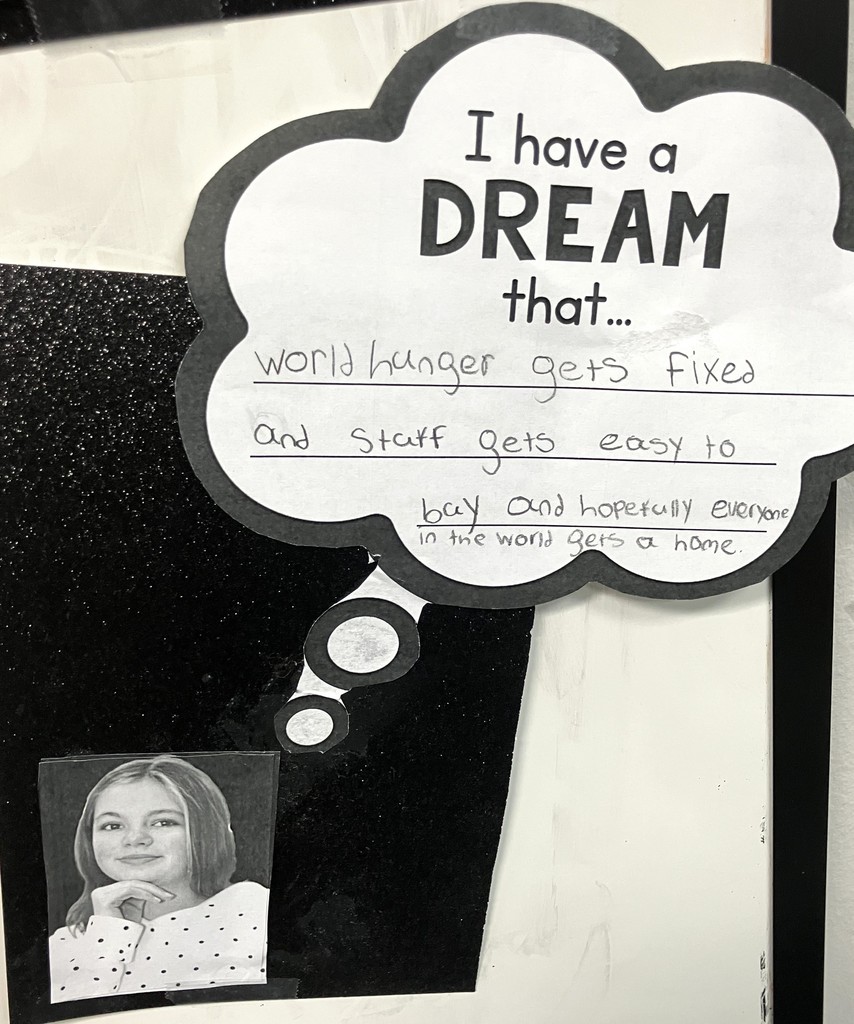 I have a
DREAM
that...
world hunger gets fixed
and stuff gets easy to
bay and hopefully everyone
in the world gets a home.